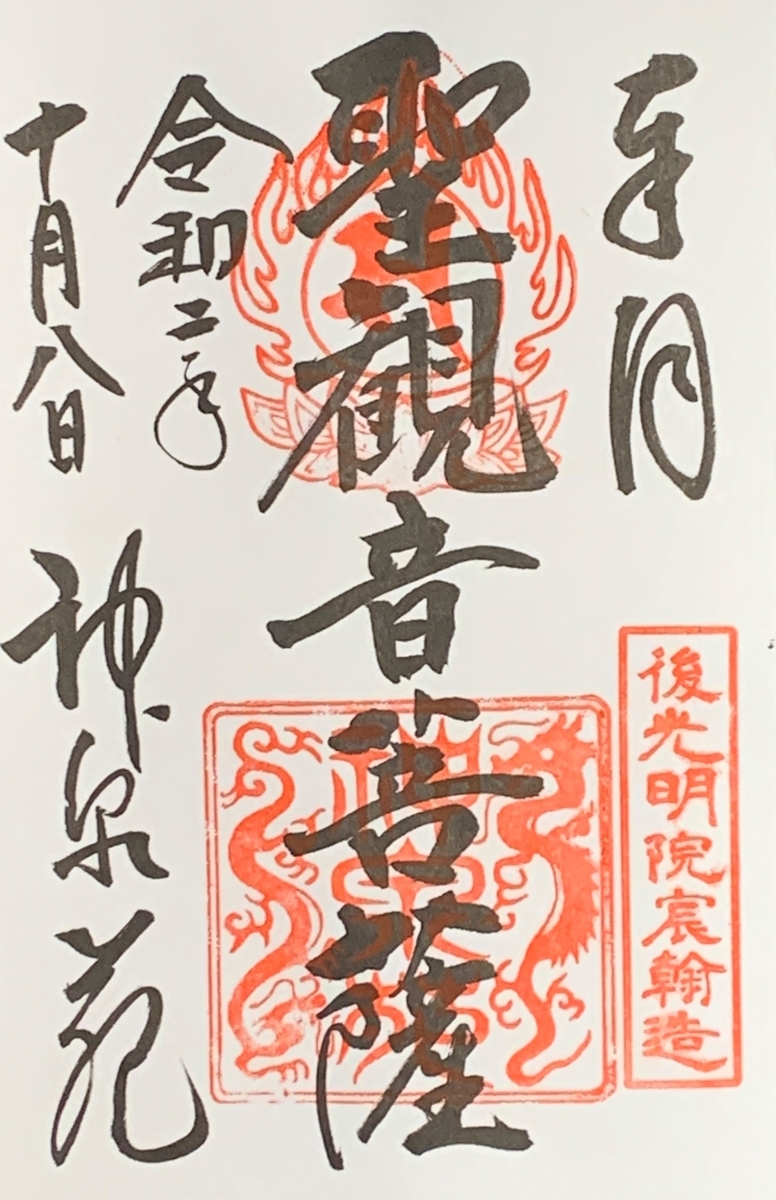 奉拝
後光明院宸翰造
聖観音菩薩
令和二年
十月八日
神泉苑